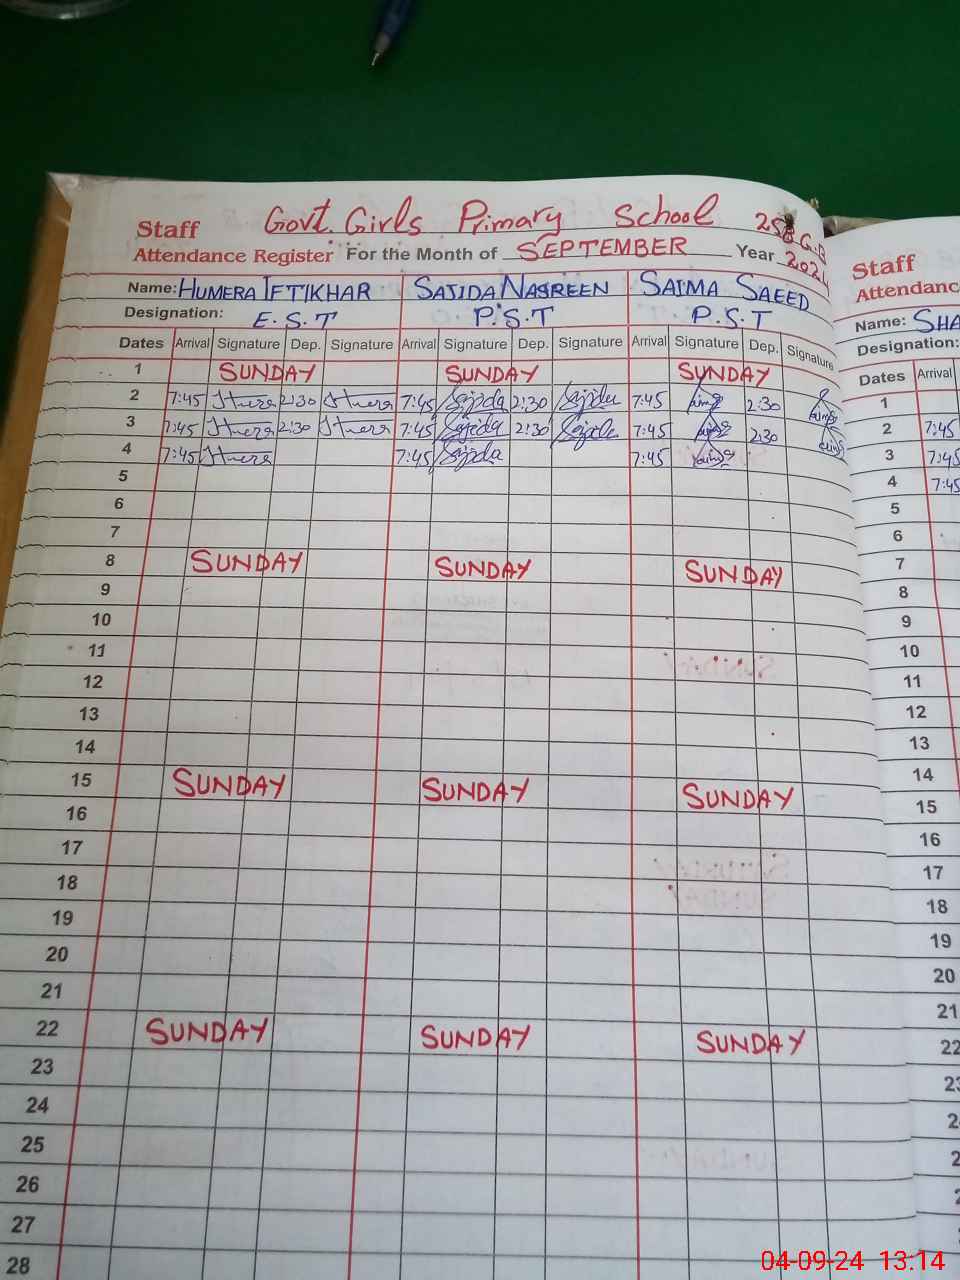 Govt. Girls Primary School 258 G.B
Staff
Attendance Register For the Month of SEPTEMBER Year 2024
Name: HUMERA IFTIKHAR SAJIDA NASREEN SAIMA SAEED
Designation: E.S.T P.S.T P.S.T
Dates Arrival Signature Dep. Signature Arrival Signature Dep. Signature Arrival Signature Dep. Signature
1 SUNDAY SUNDAY SUNDAY
2 7:45 2:30 7:45 Sajida 2:30 Sajida 7:45 2:30
3 7:45 2:30 7:45 Sajida 2:30 Sajida 7:45 2:30
4 7:45 7:45 Sajida 7:45
5
6
7
8 SUNDAY SUNDAY SUNDAY
9
10
11
12
13
14
15 SUNDAY SUNDAY SUNDAY
16
17
18
19
20
21
22 SUNDAY SUNDAY SUNDAY
23
24
25
26
27
28
Staff
Attendanc
Name: SHA
Designation:
Dates Arrival
1
2 7:45
3 7:45
4 7:45
5
6
7
8
9
10
11
12
13
14
15
16
17
18
19
20
21
22
04-09-24 13:14